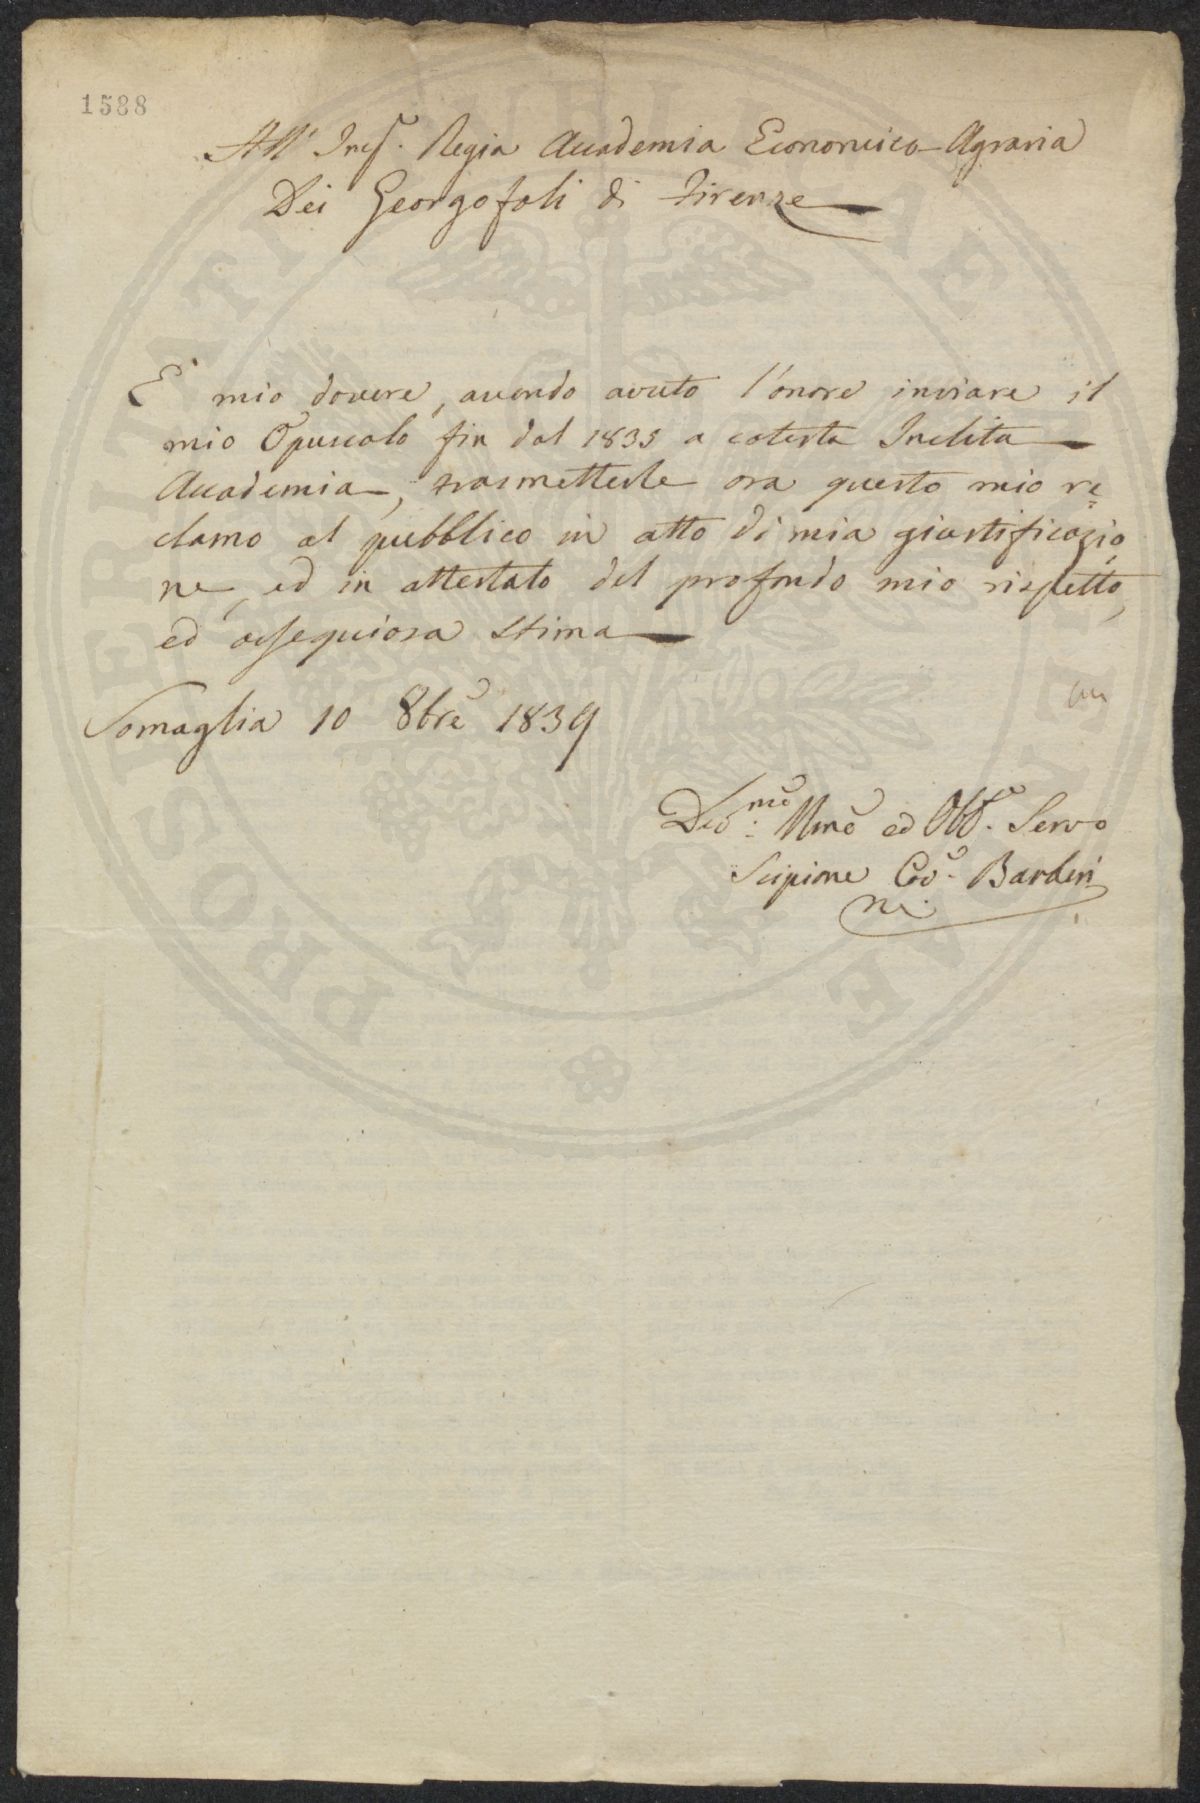 1588
All' Incl. Regia Accademia Economico-Agraria
Dei Georgofoli di Firenze
E' mio dovere, avendo avuto l'onore inviare il
mio Opuscolo fin dal 1835 a cotesta Inclita
Accademia, trasmetterle ora questo mio re=
clamo al pubblico in atto di mia giustificazio=
ne, ed in attestato del profondo mio rispetto,
ed ossequiosa stima
Somaglia 10 8bre 1839
Servo
Scipione Barderi
ni.
PROSPERITATI PUBLICAE